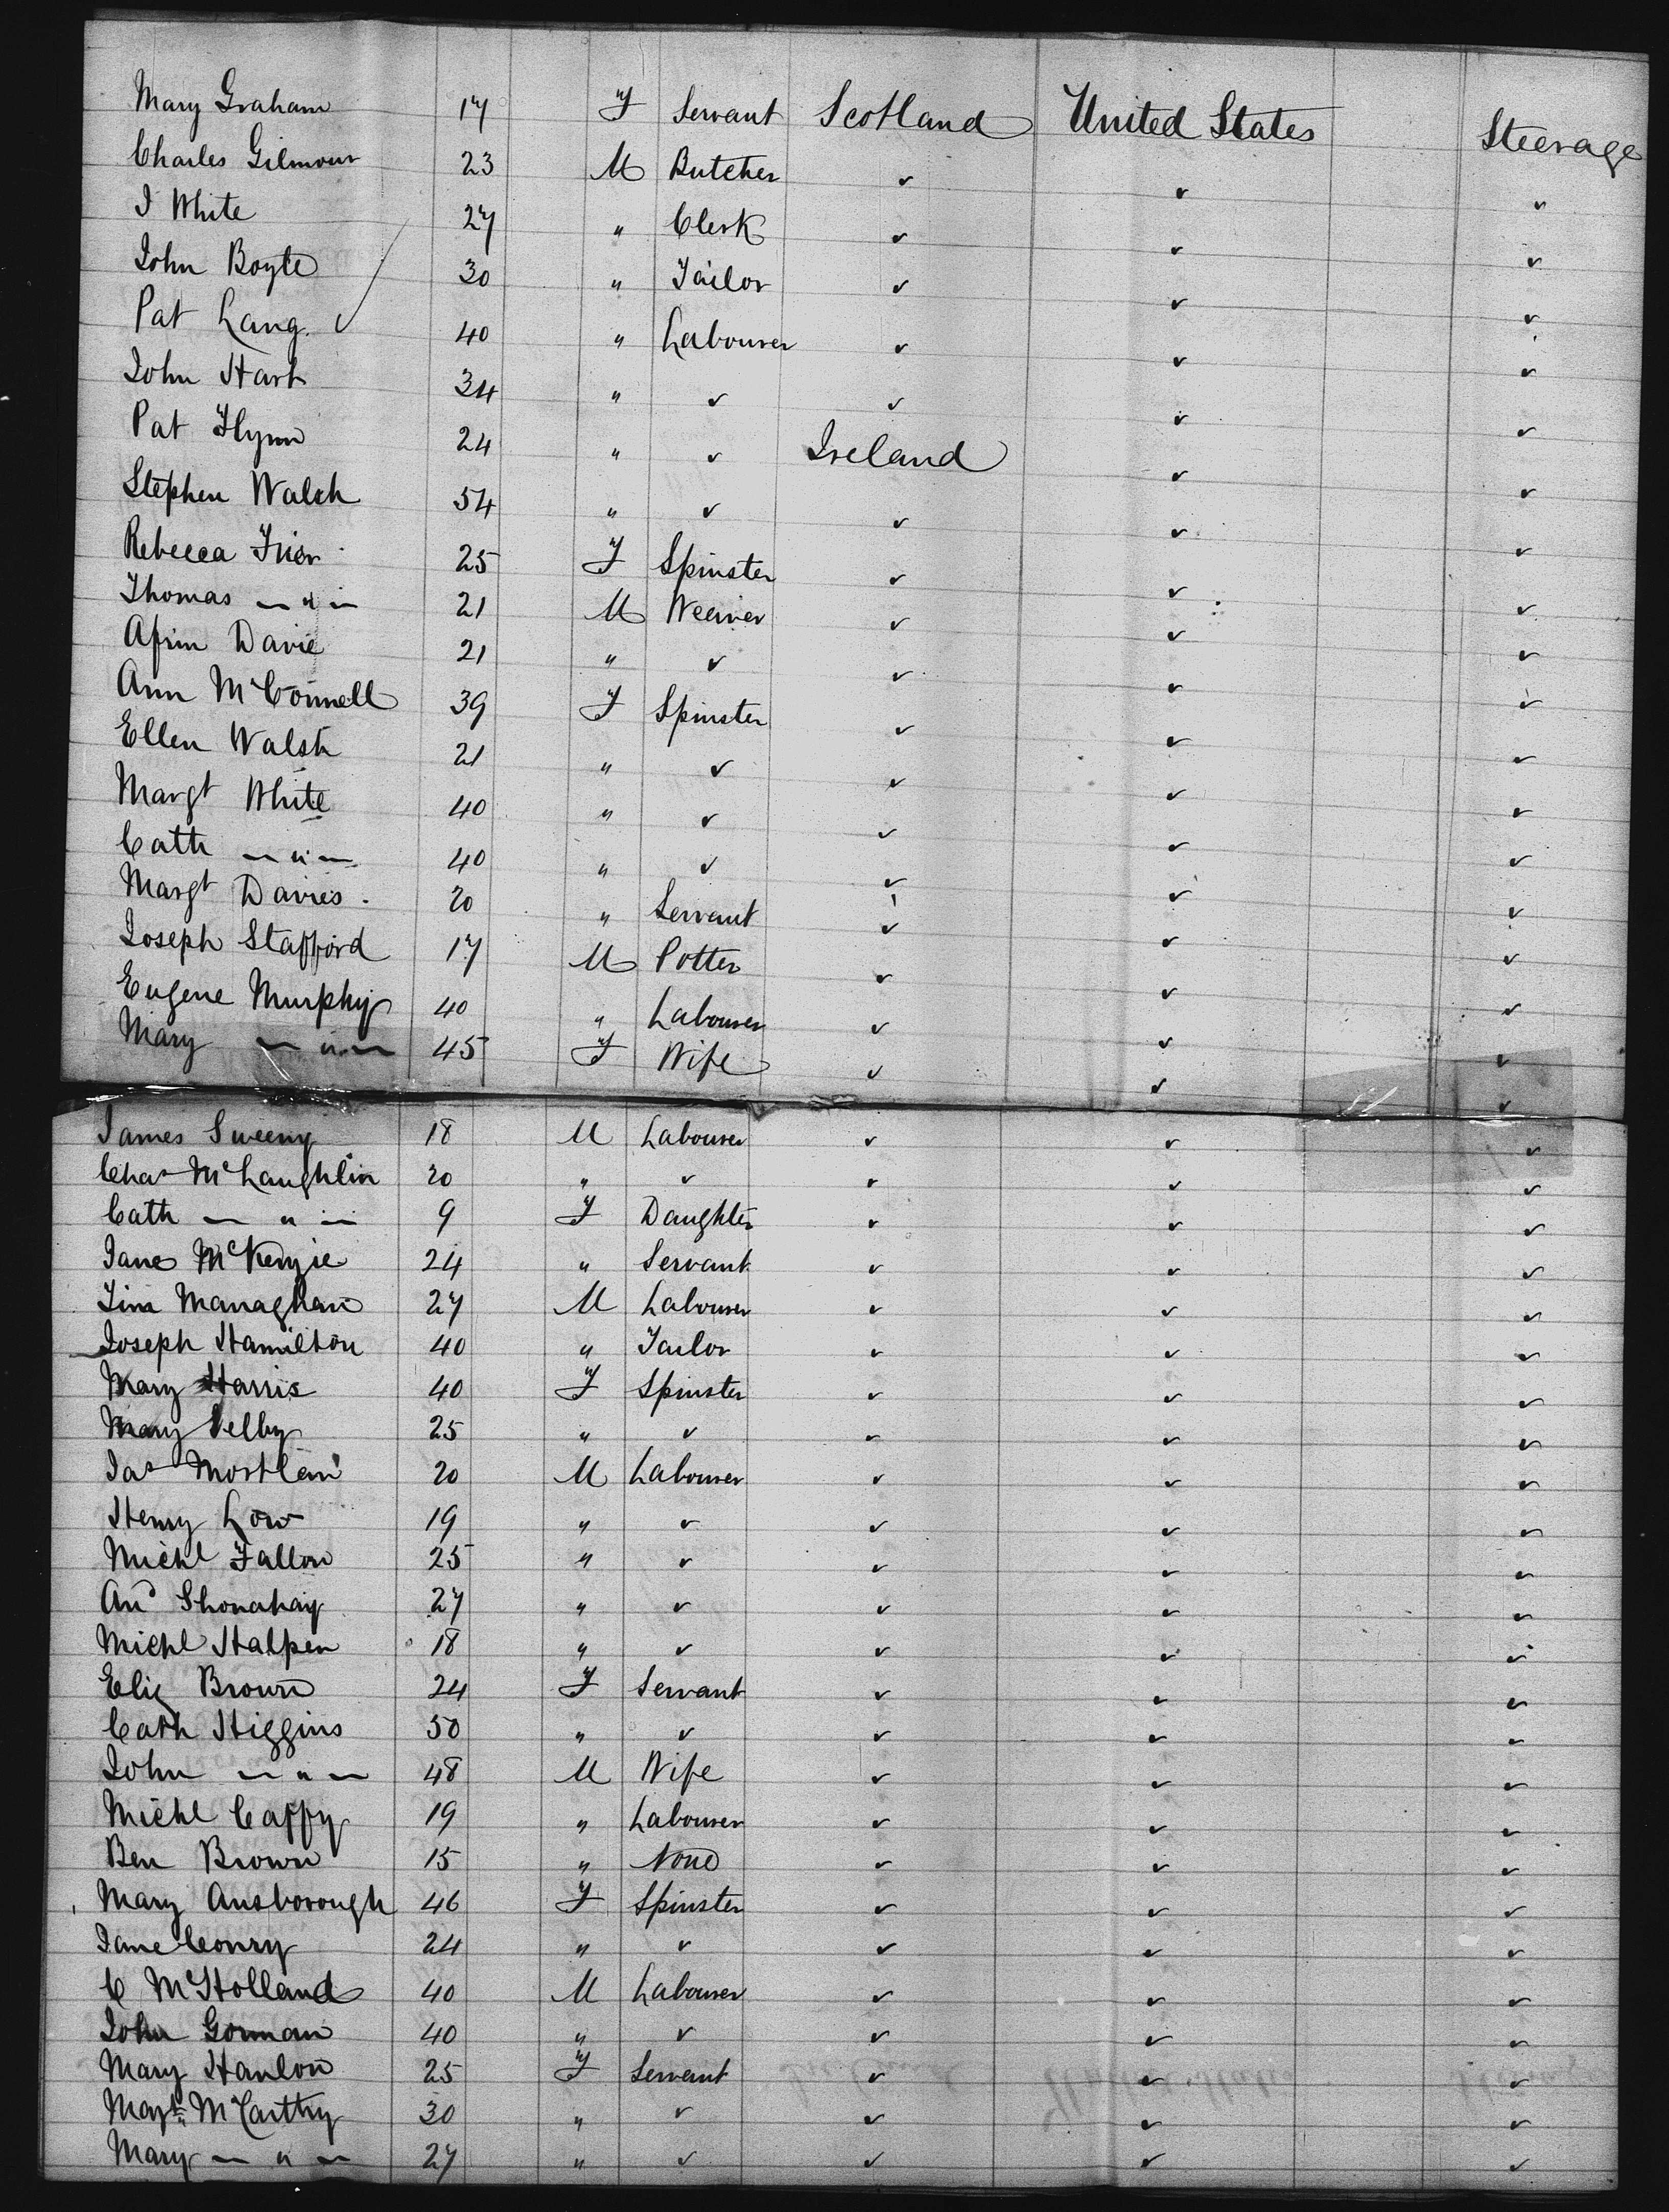 Mary Graham 17 F Servant Scotland United States Steerage
Charles Gilmour 23 M Butcher ✓ ✓ ✓
J White 27 " Clerk ✓ ✓ ✓
John Boyle 30 " Tailor ✓ ✓ ✓
Pat Lang. ✓ 40 " Labourer ✓ ✓ ✓
John Hart 34 " ✓ ✓ ✓ ✓
Pat Flynn 24 " ✓ Ireland ✓ ✓
Stephen Walsh 54 " ✓ ✓ ✓ ✓
Rebecca Frier 25 F Spinster ✓ ✓ ✓
Thomas — " — 21 M Weaver ✓ ✓ ✓
Davie 21 " ✓ ✓ ✓ ✓
Ann McConnell 39 F Spinster ✓ ✓ ✓
Ellen Walsh 21 " ✓ ✓ ✓ ✓
Margt White 40 " ✓ ✓ ✓ ✓
Cath — " — 40 " ✓ ✓ ✓ ✓
Margt Davies 20 " Servant ✓ ✓ ✓
Joseph Stafford 17 M Potter ✓ ✓ ✓
Eugene Murphy 40 " Labourer ✓ ✓ ✓
Mary — " — 45 F Wife ✓ ✓ ✓
James Sweeny 18 M Labourer ✓ ✓ ✓
Chas McLaughlin 20 " ✓ ✓ ✓ ✓
Cath — " — 9 F Daughter ✓ ✓ ✓
Jane McKenzie 24 " Servant ✓ ✓ ✓
Tim Managhan 27 M Labourer ✓ ✓ ✓
Joseph Hamilton 40 " Tailor ✓ ✓ ✓
Mary Harris 40 F Spinster ✓ ✓ ✓
Mary Selby 25 " ✓ ✓ ✓ ✓
Jas 20 M Labourer ✓ ✓ ✓
Henry Low 19 " ✓ ✓ ✓ ✓
Michl Fallon 25 " ✓ ✓ ✓ ✓
And 27 " ✓ ✓ ✓ ✓
Michl Halpen 18 " ✓ ✓ ✓ ✓
Eliz Brown 24 F Servant ✓ ✓ ✓
Cath Higgins 50 " ✓ ✓ ✓ ✓
John — " — 48 M Wife ✓ ✓ ✓
Michl Caffy 19 " Labourer ✓ ✓ ✓
Ben Brown 15 " None ✓ ✓ ✓
Mary Ansborough 46 F Spinster ✓ ✓ ✓
Jane Conry 24 " ✓ ✓ ✓ ✓
C McHolland 40 M Labourer ✓ ✓ ✓
John Gorman 40 " ✓ ✓ ✓ ✓
Mary Hanlon 25 F Servant ✓ ✓ ✓
Magt McCarthy 30 " ✓ ✓ ✓ ✓
Mary — " — 27 " ✓ ✓ ✓ ✓